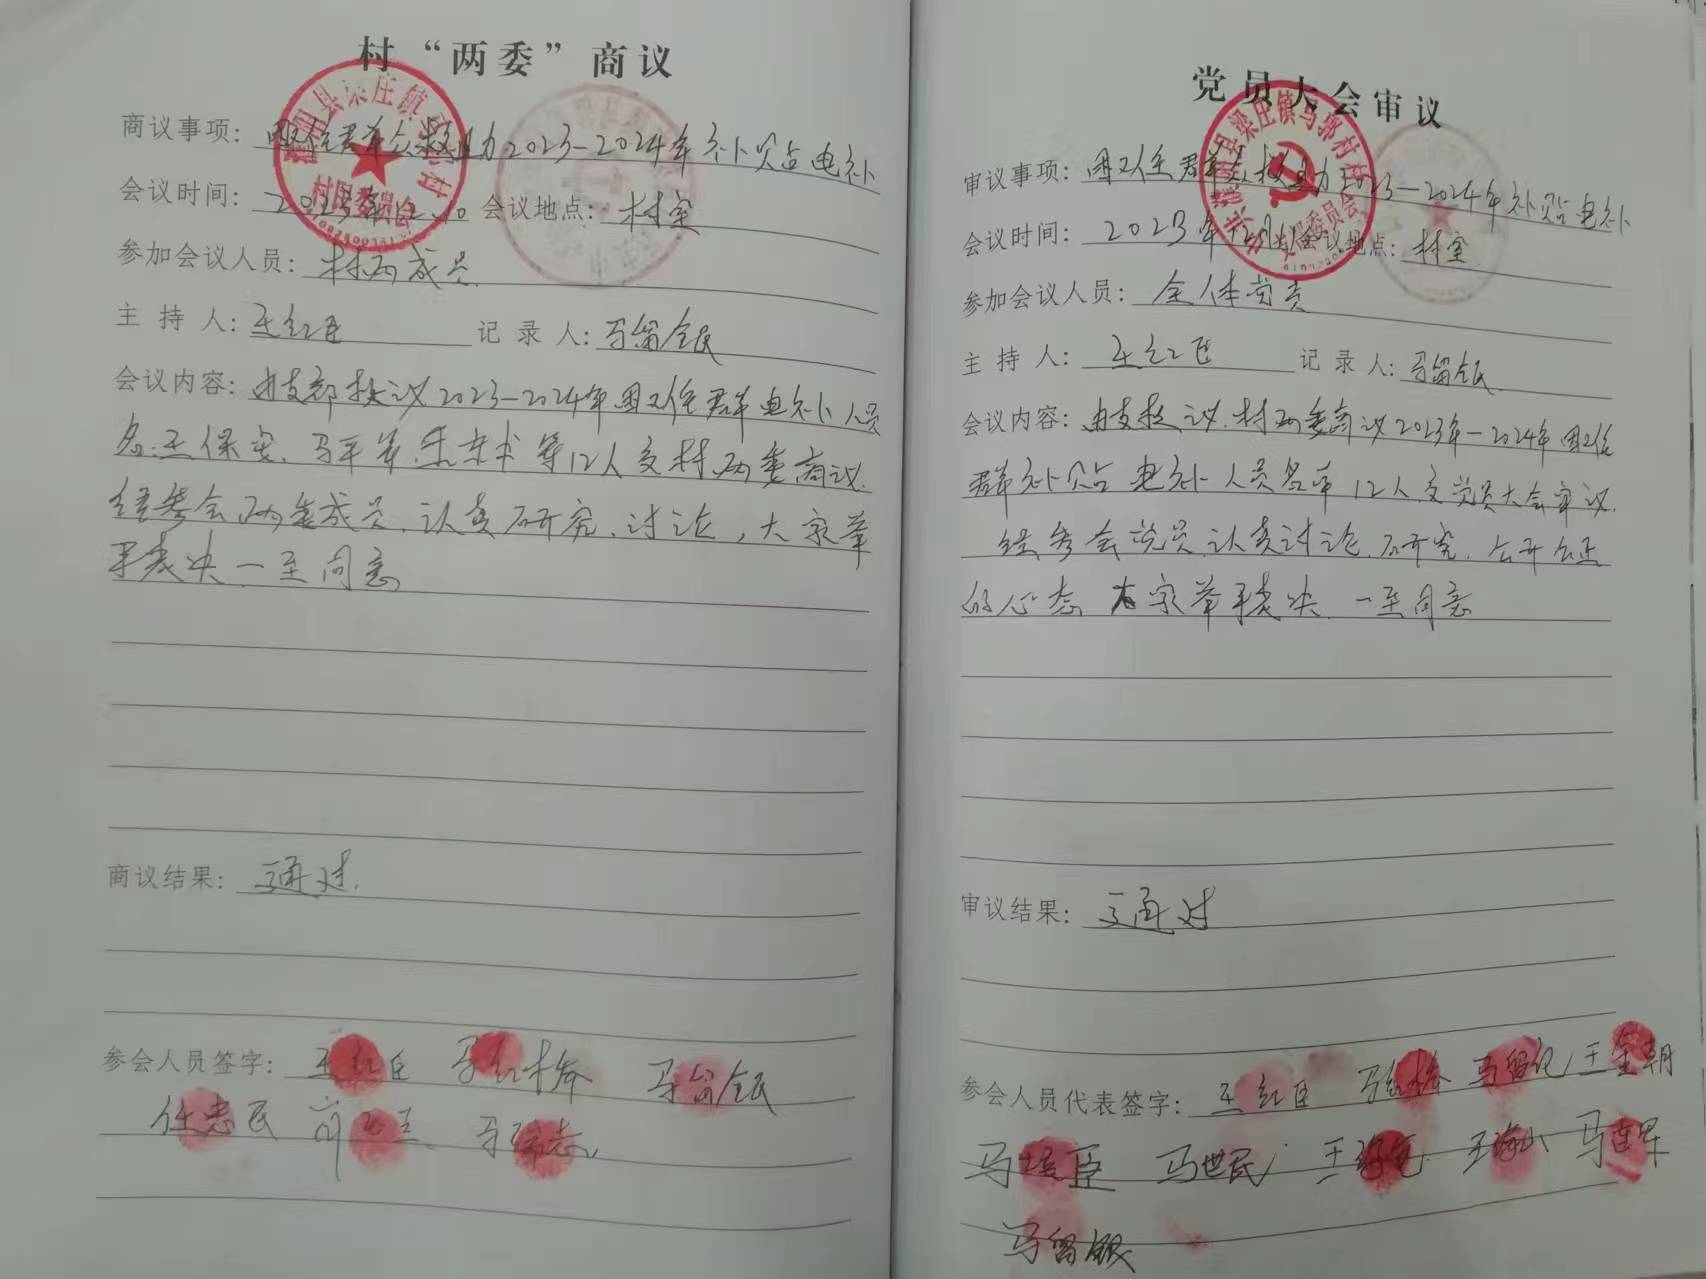 村“两委”商议
商议事项: 困难群众救助2023-2024年补贴电补
会议时间: 会议地点: 村室
参加会议人员: 村两成员
主持人: 王红臣 记录人: 马留全民
会议内容: 由支部提议2023-2024年困难群电补人员
名:王保安、马平 等12人交村两委商议.
经参会两委成员、认真研究、讨论,大家举
手表决一至同意
商议结果: 通过.
参会人员签字: 王红臣 马红 马留全民
任忠民 马 志
濮阳县梁庄镇 村
村民委员会
党员大会审议
审议事项: 困难群众救助2023-2024年补贴电补
会议时间: 2023年12月 会议地点: 村室
参加会议人员: 全体党员
主持人: 王红臣 记录人: 马留全民
会议内容: 由支提议.村两委商议2023年-2024年困难
群补贴电补人员名单12人交党员大会审议.
经参会党员认真讨论、研究.公开公正
的心态 大家举手表决 一至同意
审议结果: 通过
参会人员代表签字: 王红臣 马红 马留 王 朝
马 臣 马世民 王 王海 马连军
马留银
濮阳县梁庄镇马郭村